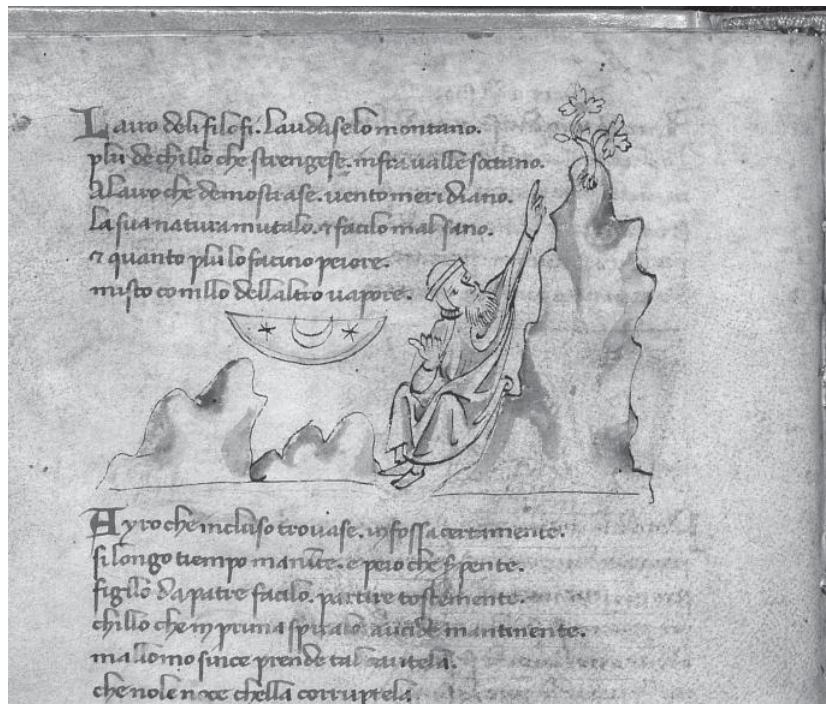 Lauro deli filosofi. Laudaselo montano.
plu de chillo che strengese. infra valle soctano.
Alauro che demostrase. vento meridiano.
La sua natura mutalo. & facilo mal sano.
& quanto plu lo facino peiore.
misto con illo dellaltro vapore.
Ayro che incluso trovase. in fossa certamente.
si longo tiempo manute. e peio che spente.
figllo da patre facilo. partire tostemente.
chillo che in prima spiralo aucide mantinente.
ma llomo si nce prende tal cautela.
che no le noce chella corruptela.